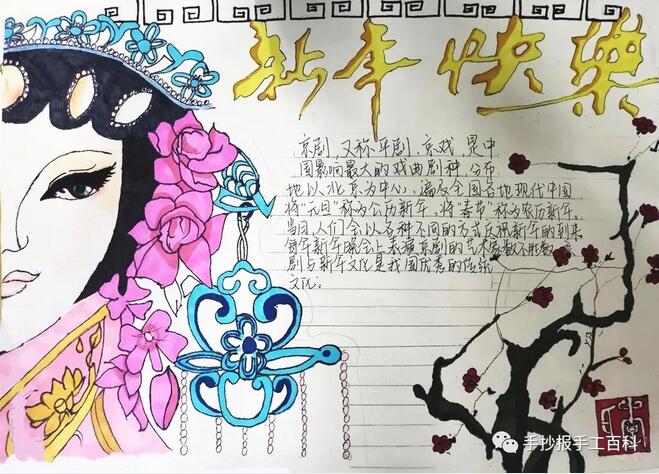 新年快乐
京剧,又称平剧、京戏,是中
国影响最大的戏曲剧种,分布
地以北京为中心,遍及全国各地现代中国
将“元旦”称为公历新年,将“春节”称为农历新年。
当日,人们会以各种不同的方式庆祝新年的到来
每年新年晚会上表演京剧的艺术家数不胜数,京
剧与新年文化是我国优秀的传统
文化;
手抄报手工百科